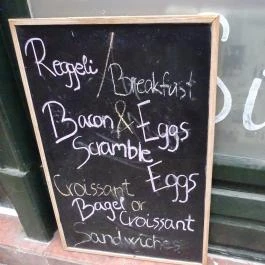 Reggeli / Breakfast
Bacon & Eggs
Scramble
Eggs
Croissant
Bagel or Croissant
Sandwiches